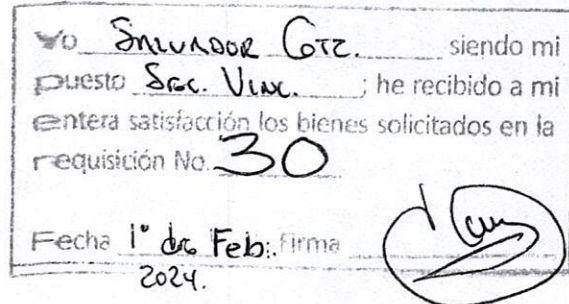 Yo Salvador Gtz. siendo mi
puesto Sec. Vinc. ; he recibido a mi
entera satisfacción los bienes solicitados en la
requisición No. 30
Fecha 1° de Feb. Firma
2024.